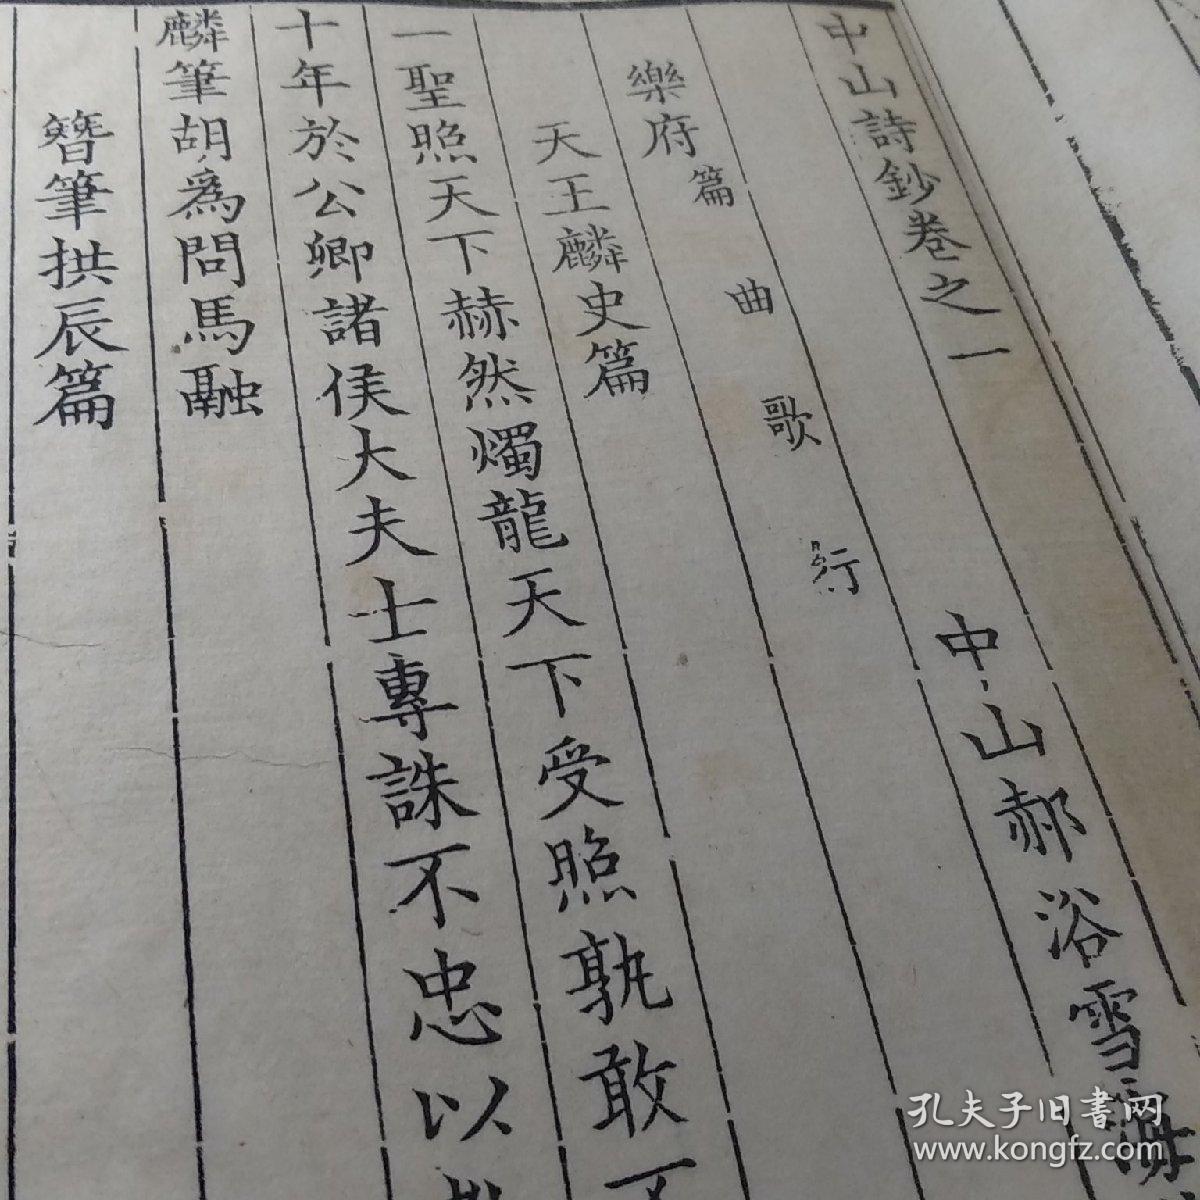 中山詩鈔卷之一
中山郝浴雪海
樂府 篇 曲 歌 行
天王麟史篇
一聖照天下赫然燭龍天下受照孰敢不
十年於公卿諸侯大夫士專誅不忠以
麟筆胡爲問馬融
簪筆拱辰篇
孔夫子旧书网
www.kongfz.com